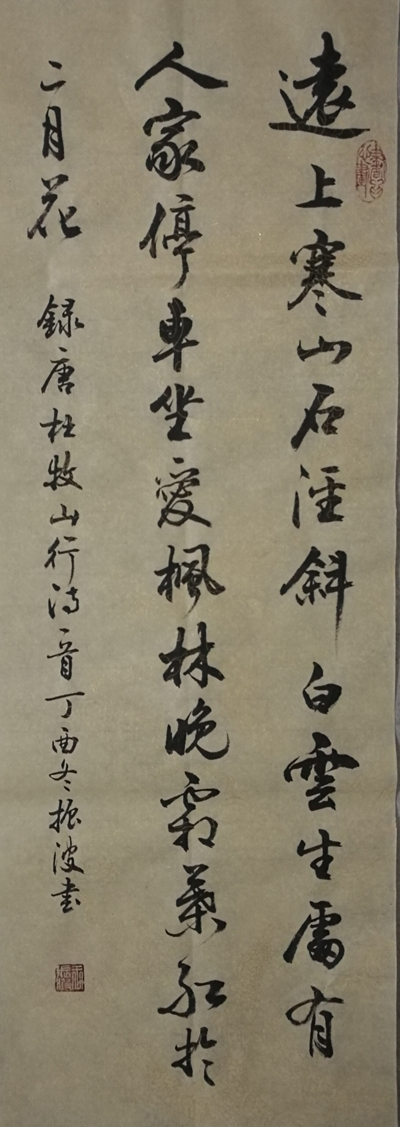 遠上寒山石径斜白雲生處有
人家停車坐愛楓林晚霜葉紅於
二月花
録唐杜牧山行詩一首丁酉冬振波书